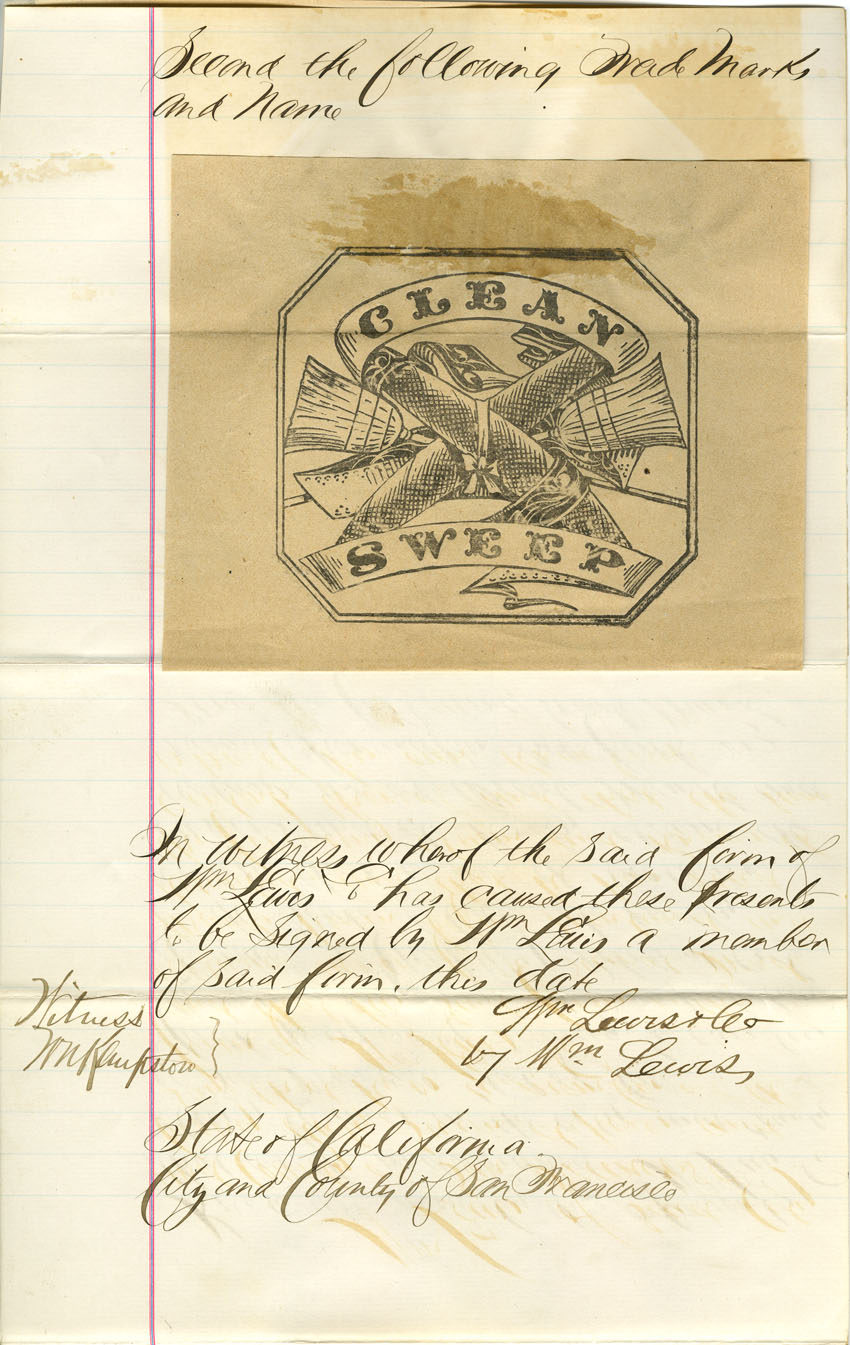 Second the following Trade Marks
and Name
CLEAN
SWEEP
In witness whereof the said firm of
Wm Lewis & has caused these presents
to be signed by Wm Lewis a member
of said firm. this date
Witness
Wm Lewis & Co
by Wm Lewis
State of California
City and County of San Francisco